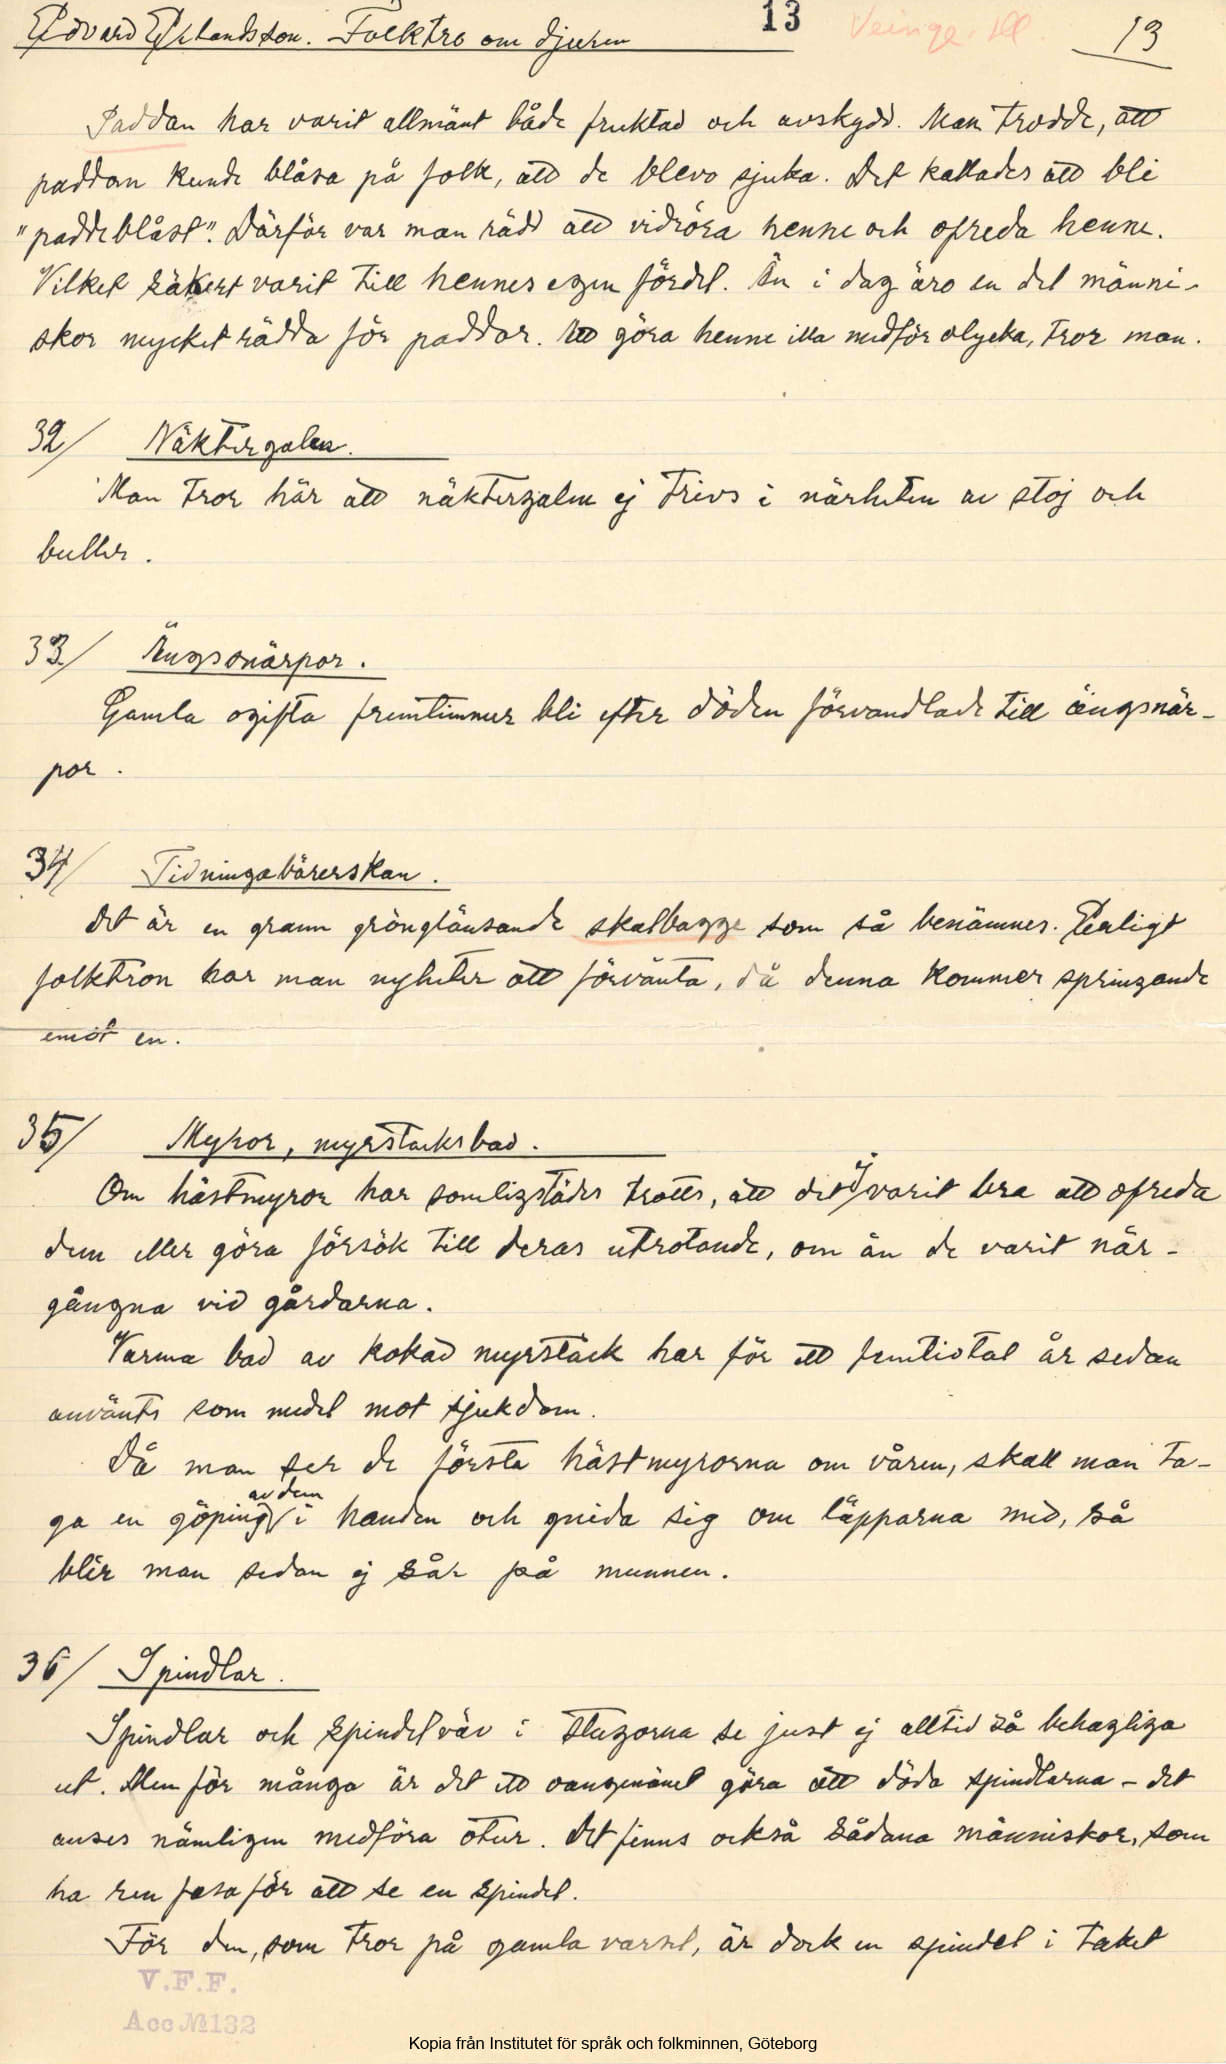 Edvard Erlandsson. Folktro om djuren
13
Veinge. Hl.
13
Paddan har varit allmänt både fruktad och avskydd. Man trodde, att
paddan kunde blåsa på folk, att de blevo sjuka. Det kallades att bli
"paddeblåst". Därför var man rädd att vidröra henne och ofreda henne.
Vilket säkert varit till hennes egen fördel. Än i dag äro en del männi-
skor mycket rädda för paddor. Att göra henne illa medför olycka, tror man.
32/ Näktergalen.
Man tror här att näktergalen ej trivs i närheten av stoj och
buller.
33/ Ängsnärpor.
Gamla ogifta fruntimmer bli efter döden förvandlade till ängsnär-
por.
34/ Tidningabärerskan.
Det är en grann grönglänsande skalbagge som så benämnes. Enligt
folktron har man nyheter att förvänta, då denna kommer springande
emot en.
35/ Myror, myrstacksbad.
Om hästmyror har somligstädes trotts, att det ej varit bra att ofreda
dem eller göra försök till deras utrotande, om än de varit när-
gångna vid gårdarna.
Varma bad av kokad myrstack har för ett femtiotal år sedan
använts som medel mot sjukdom.
Då man ser de första hästmyrorna om våren, skall man ta-
ga en göping av dem i handen och gnida sig om läpparna med, så
blir man sedan ej sår på munnen.
36/ Spindlar.
Spindlar och spindelväv i stugorna se just ej alltid så behagliga
ut. Men för många är det ett oangenämt göra att döda spindlarna – det
anses nämligen medföra otur. Det finns också sådana människor, som
ha ren fasa för att se en spindel.
För den, som tror på gamla varsel, är dock en spindel i taket
V.F.F.
Acc № 132
Kopia från Institutet för språk och folkminnen, Göteborg